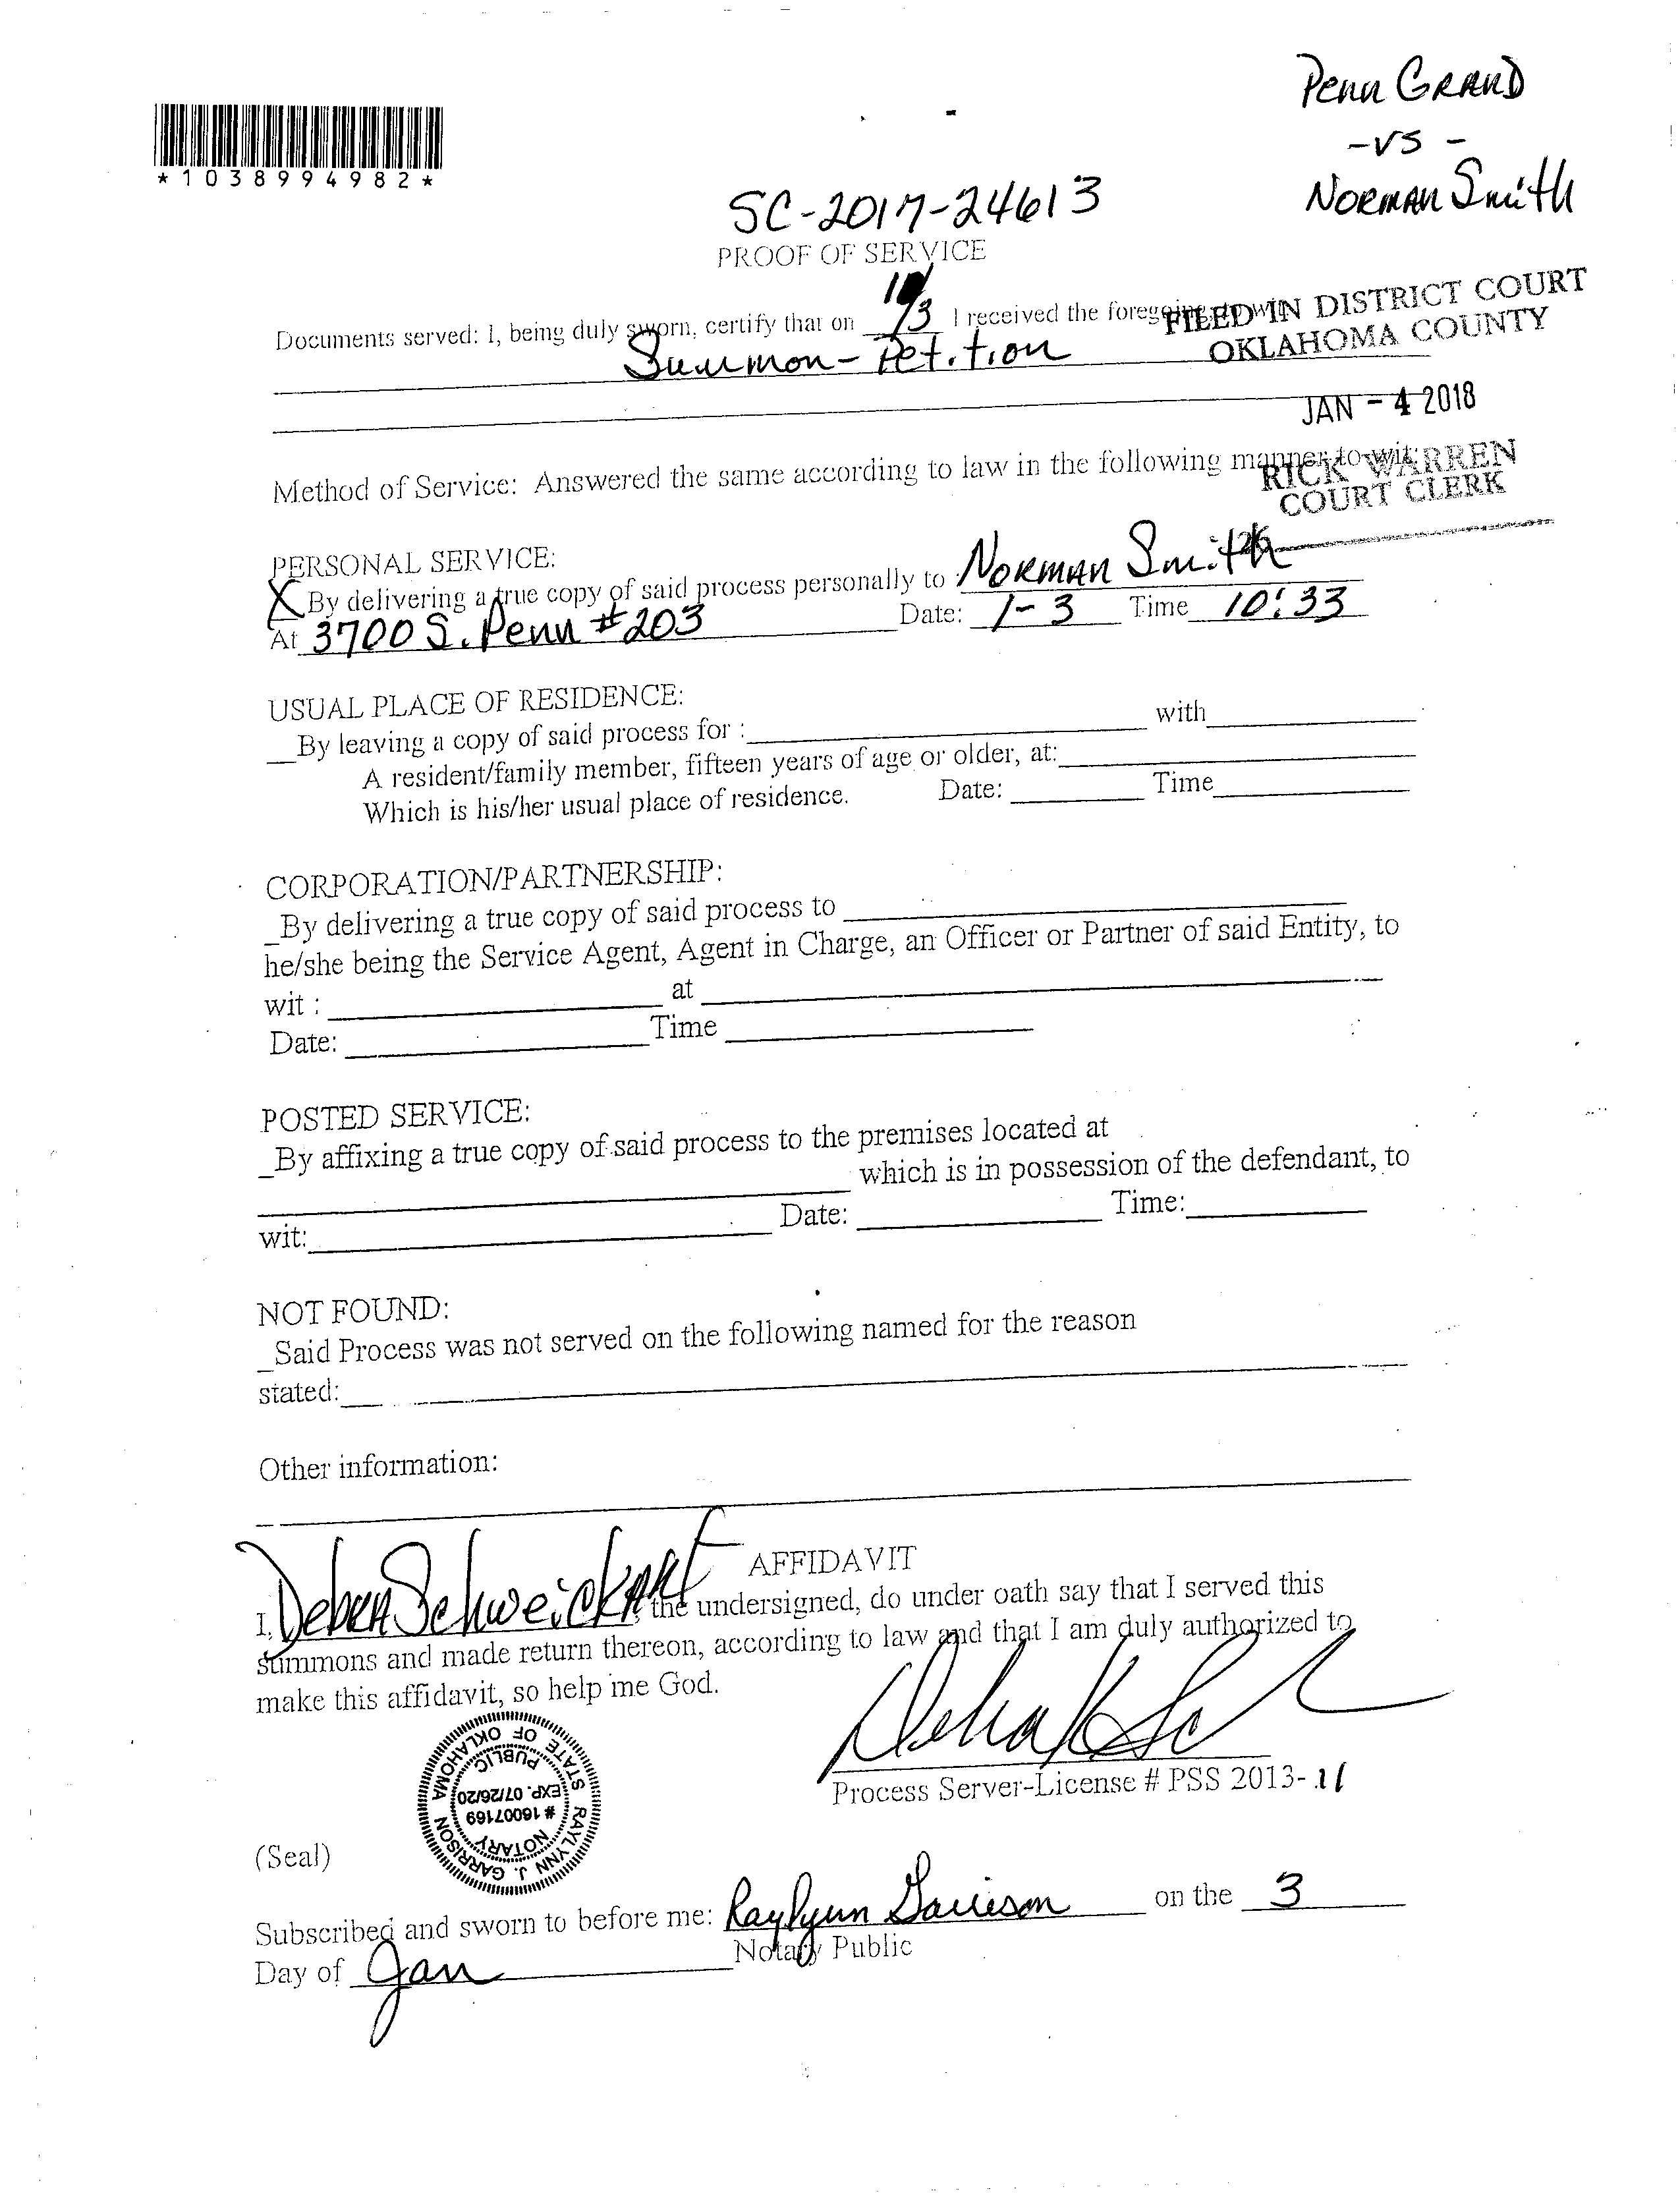 Penn GRAND
-VS-
NORMAN Smith
*1038994982*
SC-2017-24613
PROOF OF SERVICE
Documents served: I, being duly sworn, certify that on 1/3 I received the foregoing, to wit:
Summon - Petition
FILED IN DISTRICT COURT
OKLAHOMA COUNTY
JAN - 4 2018
RICK WARREN
COURT CLERK
Method of Service: Answered the same according to law in the following manner to-wit:
PERSONAL SERVICE:
X By delivering a true copy of said process personally to NORMAN Smith
At 3700 S. Penn #203 Date: 1-3 Time 10:33
USUAL PLACE OF RESIDENCE:
__By leaving a copy of said process for :__________ with__________
A resident/family member, fifteen years of age or older, at:__________
Which is his/her usual place of residence. Date: __________ Time__________
CORPORATION/PARTNERSHIP:
_By delivering a true copy of said process to __________
he/she being the Service Agent, Agent in Charge, an Officer or Partner of said Entity, to
wit : __________ at __________
Date: __________ Time __________
POSTED SERVICE:
_By affixing a true copy of said process to the premises located at
__________ which is in possession of the defendant, to
wit:__________ Date: __________ Time:__________
NOT FOUND:
_Said Process was not served on the following named for the reason
stated:__________
Other information:
AFFIDAVIT
I, Debra Schweickart, the undersigned, do under oath say that I served this
summons and made return thereon, according to law and that I am duly authorized to
make this affidavit, so help me God.
Process Server-License # PSS 2013-11
RAYLYNN J. GARRISON
STATE OF OKLAHOMA
NOTARY
# 16007169
EXP. 07/26/20
PUBLIC
(Seal)
Subscribed and sworn to before me: Raylynn Garrison on the 3
Notary Public
Day of Jan